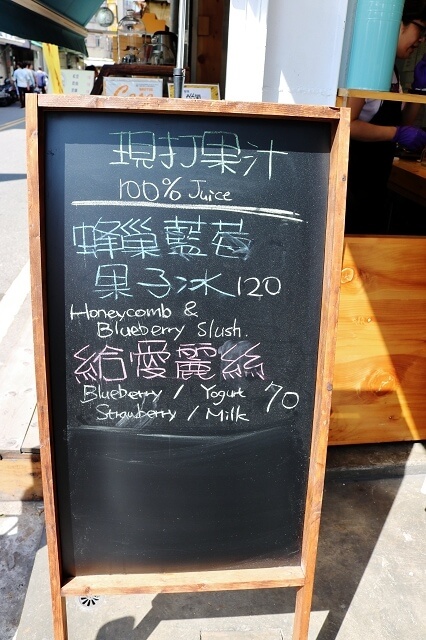 現打果汁
100% Juice
蜂巢藍莓
果子冰120
Honeycomb &
Blueberry Slush.
給愛麗絲
Blueberry / Yogurt 70
Strawberry / Milk